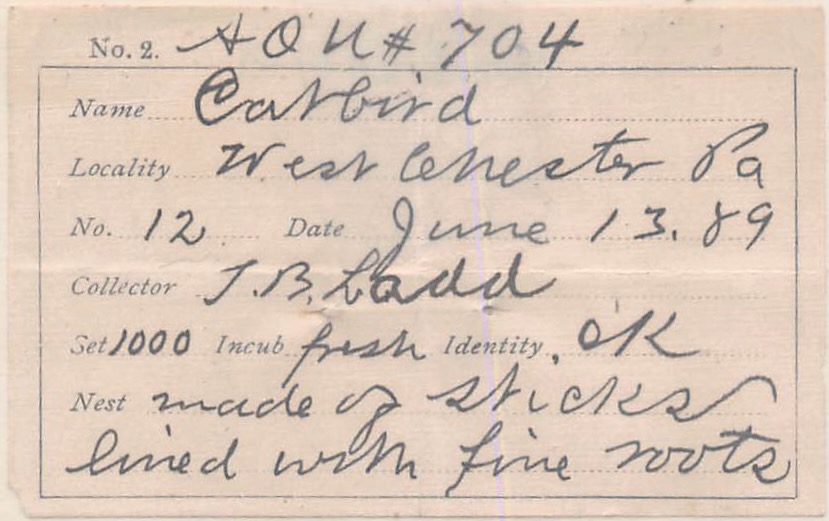 No. 2. AOU # 704
Name Catbird
Locality West Chester Pa
No. 12 Date June 13. 89
Collector T.B. Ladd
Set 1000 Incub fresh Identity OK
Nest made of sticks
lined with fine roots